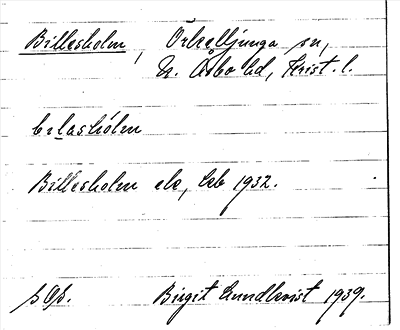 Billesholm, Örkelljunga sn,
N. Åsbo hd, Krist. l.
bilashólm
Billesholm elo, Ceb 1932.
s. 98.
Birgit Lundkvist 1939.